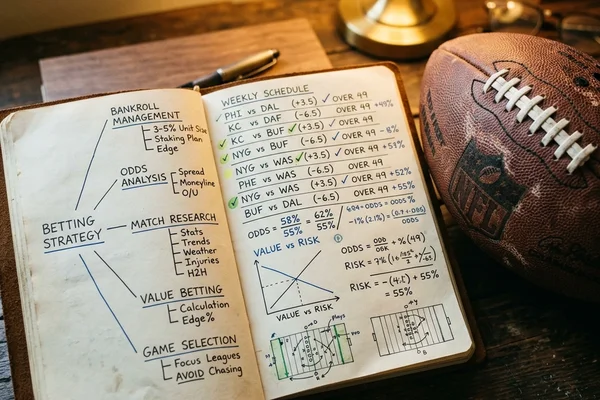 BANKROLL
MANAGEMENT
3-5% Unit Size
Staking Plan
Edge
ODDS
ANALYSIS
Spread
Moneyline
O/U
BETTING
STRATEGY
MATCH RESEARCH
Stats
Trends
Weather
Injuries
H2H
VALUE BETTING
Calculation
Edge%
GAME SELECTION
Focus Leagues
AVOID Chasing
WEEKLY SCHEDULE
✓ PHI vs DAL (+3.5) ✓ OVER 49
KC vs DAF (-6.5) OVER 49 +49%
✓ KC vs BUF ✓ (+3.5) ✓ OVER 49
✓ NYG vs BUF (-6.5) OVER 49 - 8%
NYG vs WAS ✓ (+3.5) ✓ OVER 49 +53%
PHE vs WAS (-6.5) OVER 49
✓ NYG vs WAS (+3.5) ✓ OVER 49 +52%
BUF vs DAL (-6.5) OVER 49 +55%
ODDS = 58% / 55% = 62% / 55%
VALUE VS RISK
ODDS = + % (49)
RISK = 7%
RISK = + 55%
= 55%
VALUE VS RISK
Plays
NFL